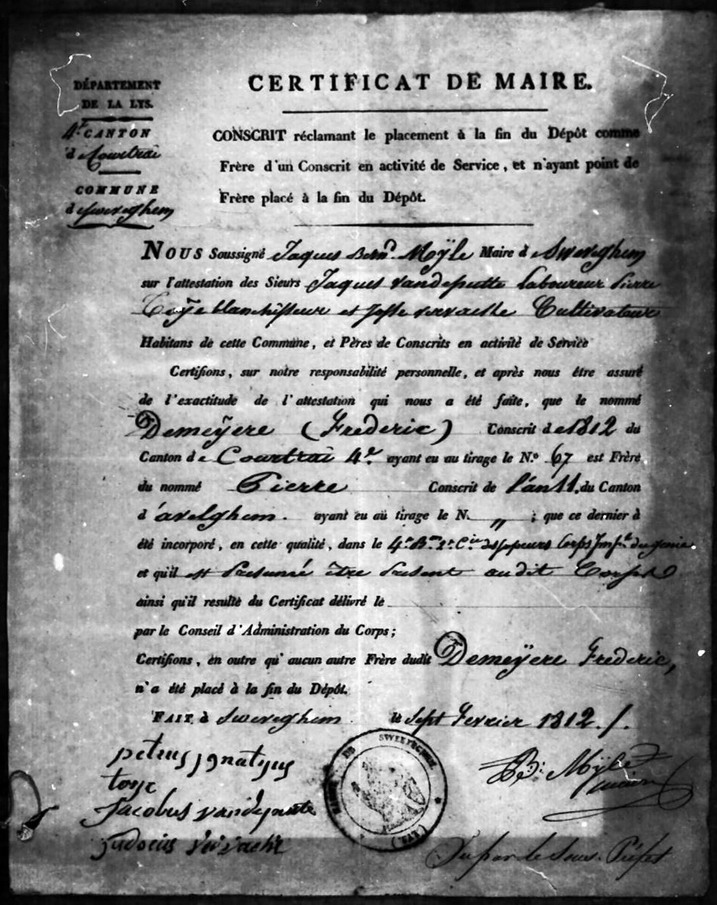 DÉPARTEMENT
DE LA LYS.
4.e CANTON
d Courtrai
COMMUNE
d Sweveghem
CERTIFICAT DE MAIRE.
CONSCRIT réclamant le placement à la fin du Dépôt comme
Frère d'un Conscrit en activité de Service, et n'ayant point de
Frère placé à la fin du Dépôt.
NOUS Soussigné Jaques Bern.d Mÿle Maire d Sweveghem
sur l'attestation des Sieurs Jaques vandeputte laboureur Pierre
Toÿe blanchisseur et Josse vervaecke Cultivateur
Habitans de cette Commune, et Pères de Conscrits en activité de Service
Certifions, sur notre responsabilité personnelle, et après nous être assuré
de l'exactitude de l'attestation qui nous a été faite, que le nommé
Demeÿere (Frederic) Conscrit de 1812 du
Canton de Courtrai 4.e ayant eu au tirage le N.o 67 est Frère
du nommé Pierre Conscrit de l'an 11. du Canton
d'avelghem. ayant eu au tirage le N. „ ; que ce dernier à
été incorporé, en cette qualité, dans le 4.e B.on 2.e C.ie de sapeurs Corps Imp.l du genie
et qu'il est Presumé être Present audit Corps
ainsi qu'il resulte du Certificat délivré le
par le Conseil d'Administration du Corps;
Certifions, en outre qu'aucun autre Frère dudit Demeÿere Frederic,
n'a été placé à la fin du Dépôt.
FAIT, à Sweveghem le sept Fevrier 1812./.
petrus jgnatyus
toye
Jacobus vandeputte
judocus
MAIRIE DE SWEVEGHEM
(LYS)
B: Mÿle
Vu par le Sous-Préfet